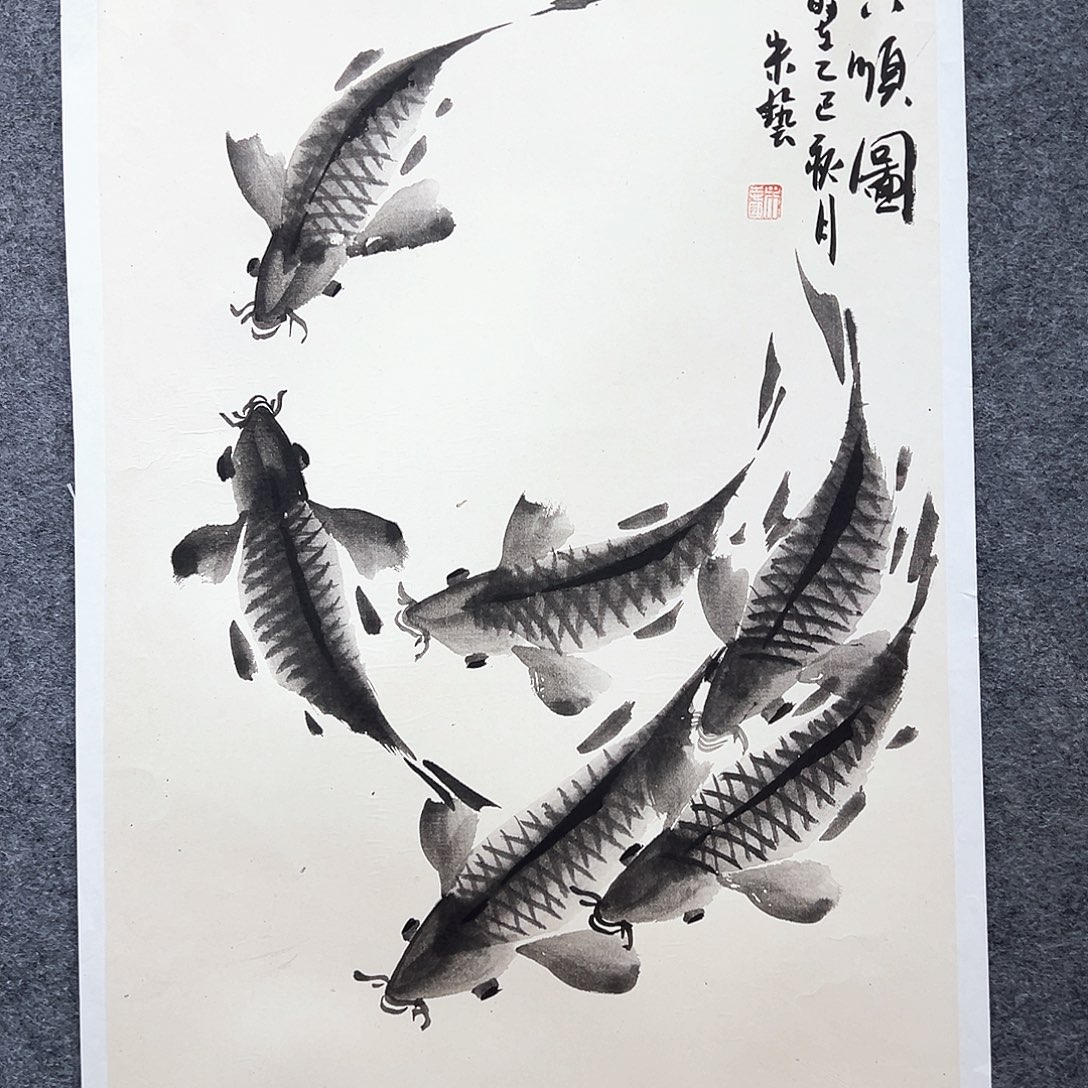 順圖
乙巳秋月
朱藝